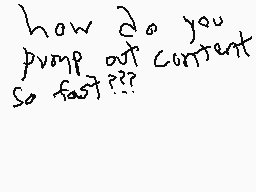 how do you
pump out content
so fast???